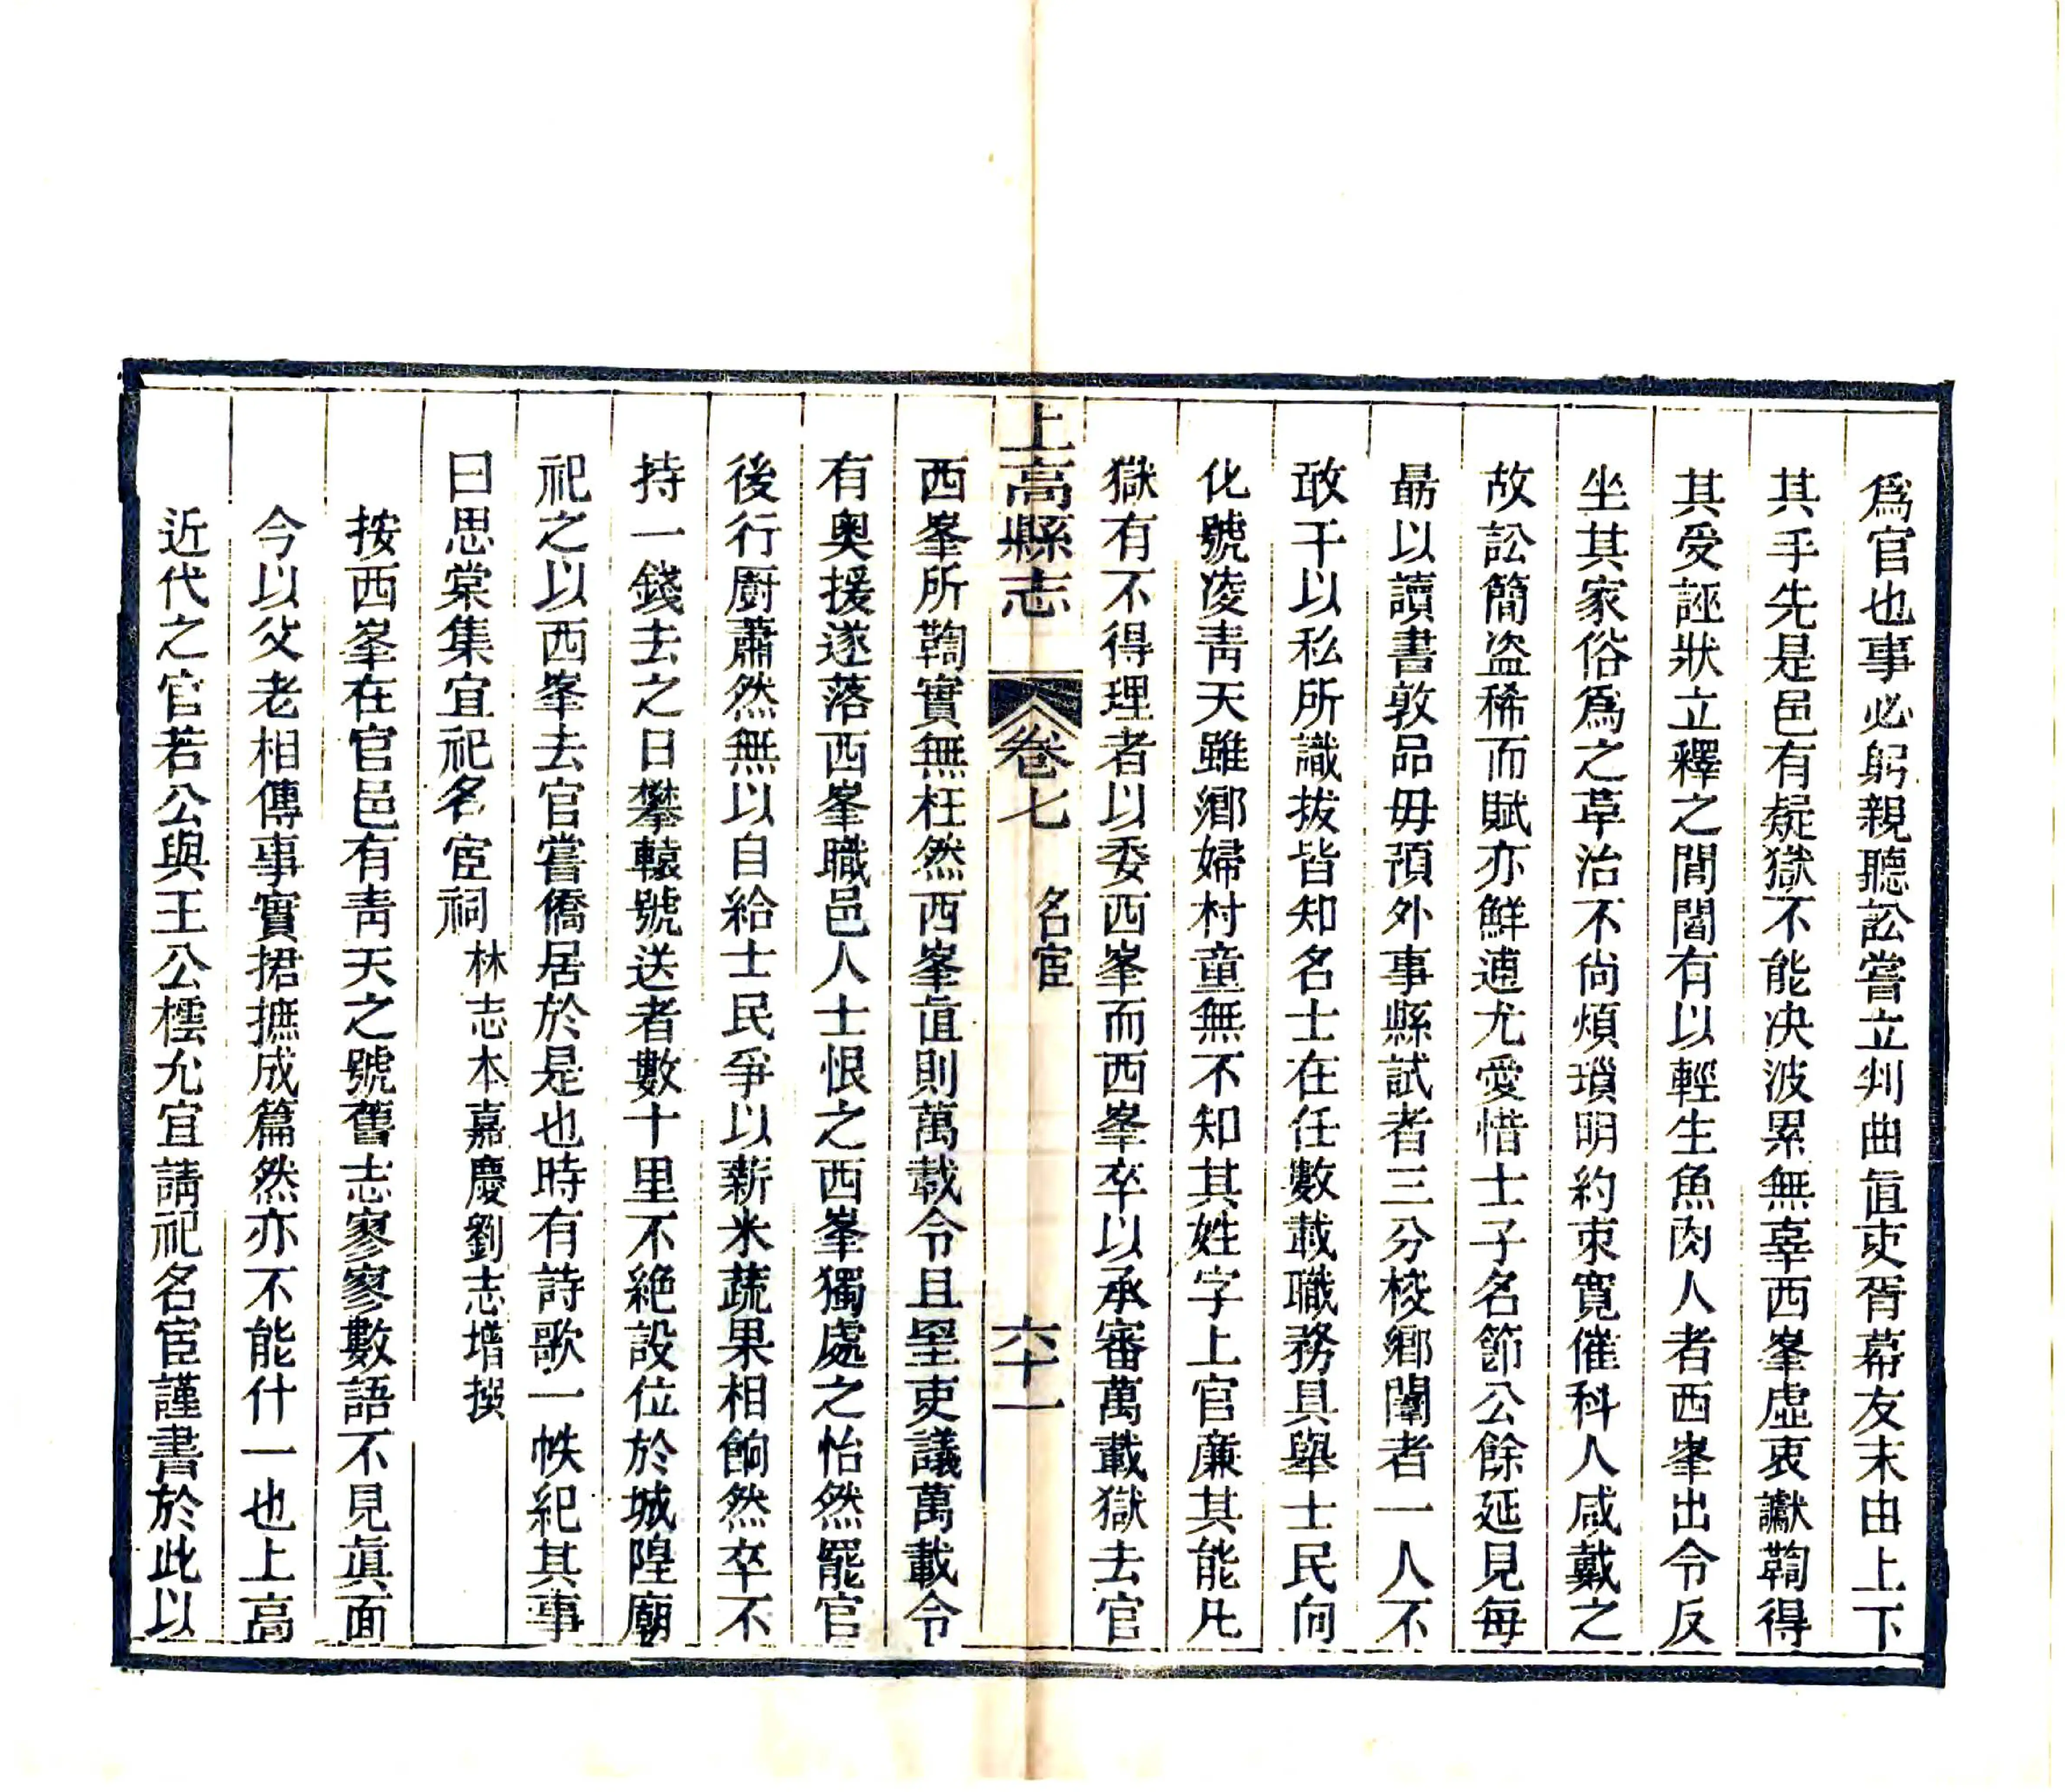 爲官也事必躬親聽訟嘗立判曲直吏胥幕友末由上下
其手先是邑有疑獄不能决波累無辜西峯虛衷讞鞫得
其受誣狀立釋之閭閻有以輕生魚肉人者西峯出令反
坐其家俗爲之革治不尚煩瑣明約束寬催科人咸戴之
故訟簡盗稀而賦亦鮮逋尤愛惜士子名節公餘延見每
勗以讀書敦品毋預外事縣試者三分校鄉闈者一人不
敢干以私所識拔皆知名士在任數載職務具舉士民向
化號凌靑天雖鄉婦村童無不知其姓字上官廉其能凡
獄有不得理者以委西峯而西峯卒以承審萬載獄去官
上高縣志 卷七 名宦 六十一
西峯所鞫實無枉然西峯直則萬載令且罣吏議萬載令
有奥援遂落西峯職邑人士恨之西峯獨處之怡然罷官
後行厨蕭然無以自給士民爭以薪米蔬果相餉然卒不
持一錢去之日攀轅號送者數十里不絶設位於城隍廟
祀之以西峯去官嘗僑居於是也時有詩歌一帙紀其事
曰思棠集宜祀名宦祠 林志本嘉慶劉志增撰
按西峯在官邑有靑天之號舊志寥寥數語不見眞面
今以父老相傳事實捃摭成篇然亦不能什一也上高
近代之官若公與王公橒允宜請祀名宦謹書於此以